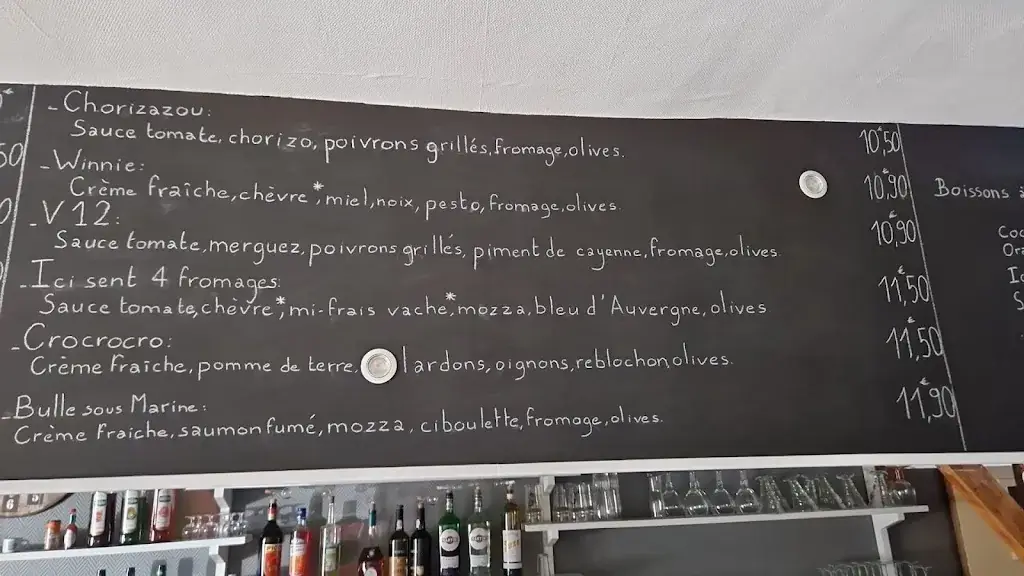 - Chorizazou:
Sauce tomate, chorizo, poivrons grillés, fromage, olives. 10,€50
- Winnie:
Crème fraîche, chèvre*, miel, noix, pesto, fromage, olives. 10,€90
- V12:
Sauce tomate, merguez, poivrons grillés, piment de cayenne, fromage, olives. 10,€90
- Ici sent 4 fromages:
Sauce tomate, chèvre*, mi-frais vache*, mozza, bleu d'Auvergne, olives 11,€50
- Crocrocro:
Crème fraîche, pomme de terre, lardons, oignons, reblochon, olives. 11,€50
- Bulle sous Marine:
Crème fraiche, saumon fumé, mozza, ciboulette, fromage, olives. 11,€90
Boissons